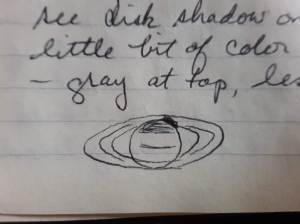 see disk shadow on
little bit of color
– gray at top, les